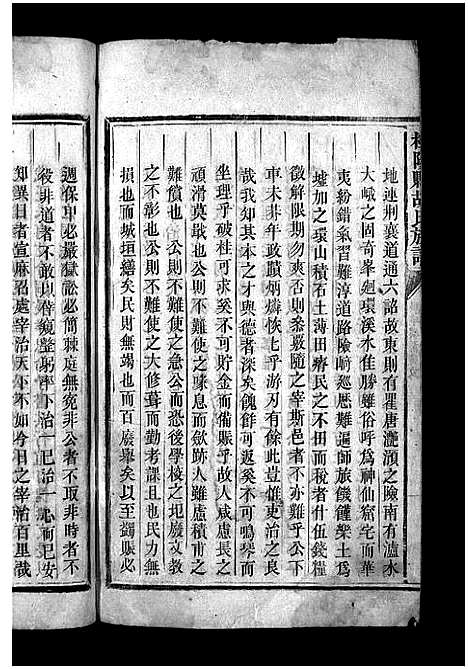 地連荆襄道通六詔故東則有瞿唐灔澦之險南有瀘水
大峨之固奇峯迴環溪水佳勝雖俗呼爲神仙窟宅而華
夷紛錯氣習難淳道路險崎經歷難遍師旅饑饉槩土爲
墟加之環山積石土薄田瘠民之不田而稅者什伍錢糧
徵解限期勿爽否則叅罰隨之宰斯邑者不綦難乎公下
車未非年政蹟炳燐恢恢乎游刃有餘此豈雖吏治之良
哉我知其本之才與德者深矣餽餉可返矣不可鳴琴而
坐理乎破柱可求矣不可貯金而備賑乎故人咸慮長之
頑滑莫戢也公則不難使之喙息而歛跡人雖慮積市之
難償也公則不難使之急公而恐後學校之圯廢文教
之不彰也公則不難使之大修葺而勤考課且也民力無
損也而城垣繕矣民則無竭也而百廢舉矣以至蠲賑必
週保甲必嚴獄訟必簡棘庭無寃非公者不取非時者不
役非道者不敢以偣窺
治一已治一心而已安
知異日者宣麻沼處宰治天下不如今日之宰治百里哉